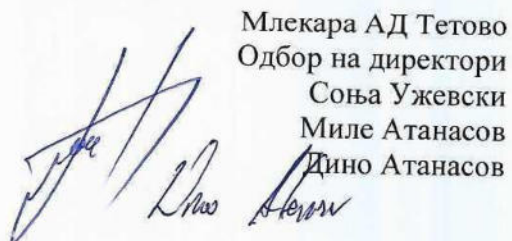 Млекара АД Тетово
Одбор на директори
Соња Ужевски
Миле Атанасов
Дино Атанасов